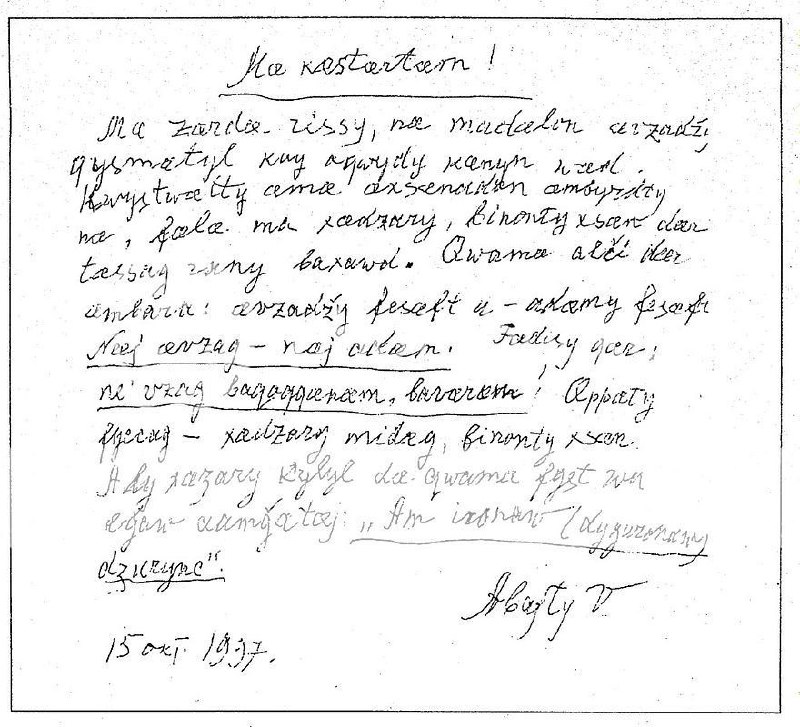 Mæ kæstærtæm!
Mæ zærdæ rissy, næ madælon ævzadžy
qysmætyl kwy aqwydy kænyn wæd.
Kwystwætty æmæ æxsænadon æmbyrdty
næ, fælæ ma xædzary, binonty xsæn dær
tæssag wyny baxawd. Qwamæ alči dær
æmbara: ævzadžy fesæft u – adæmy fesæft
Næj ævzag – næj adæm. Fædisy qær;
ne'vzag baqaqqænæm, baværæm! Æppæty
fyccag – xædzary midæg, binonty xsæn.
Aly xæzary kyly dær qwamæ fyst wa
ægæw æmğætæj: „Am ironaw (dyguronaw)
dzurync".
Abajty V
15 okt 1997.